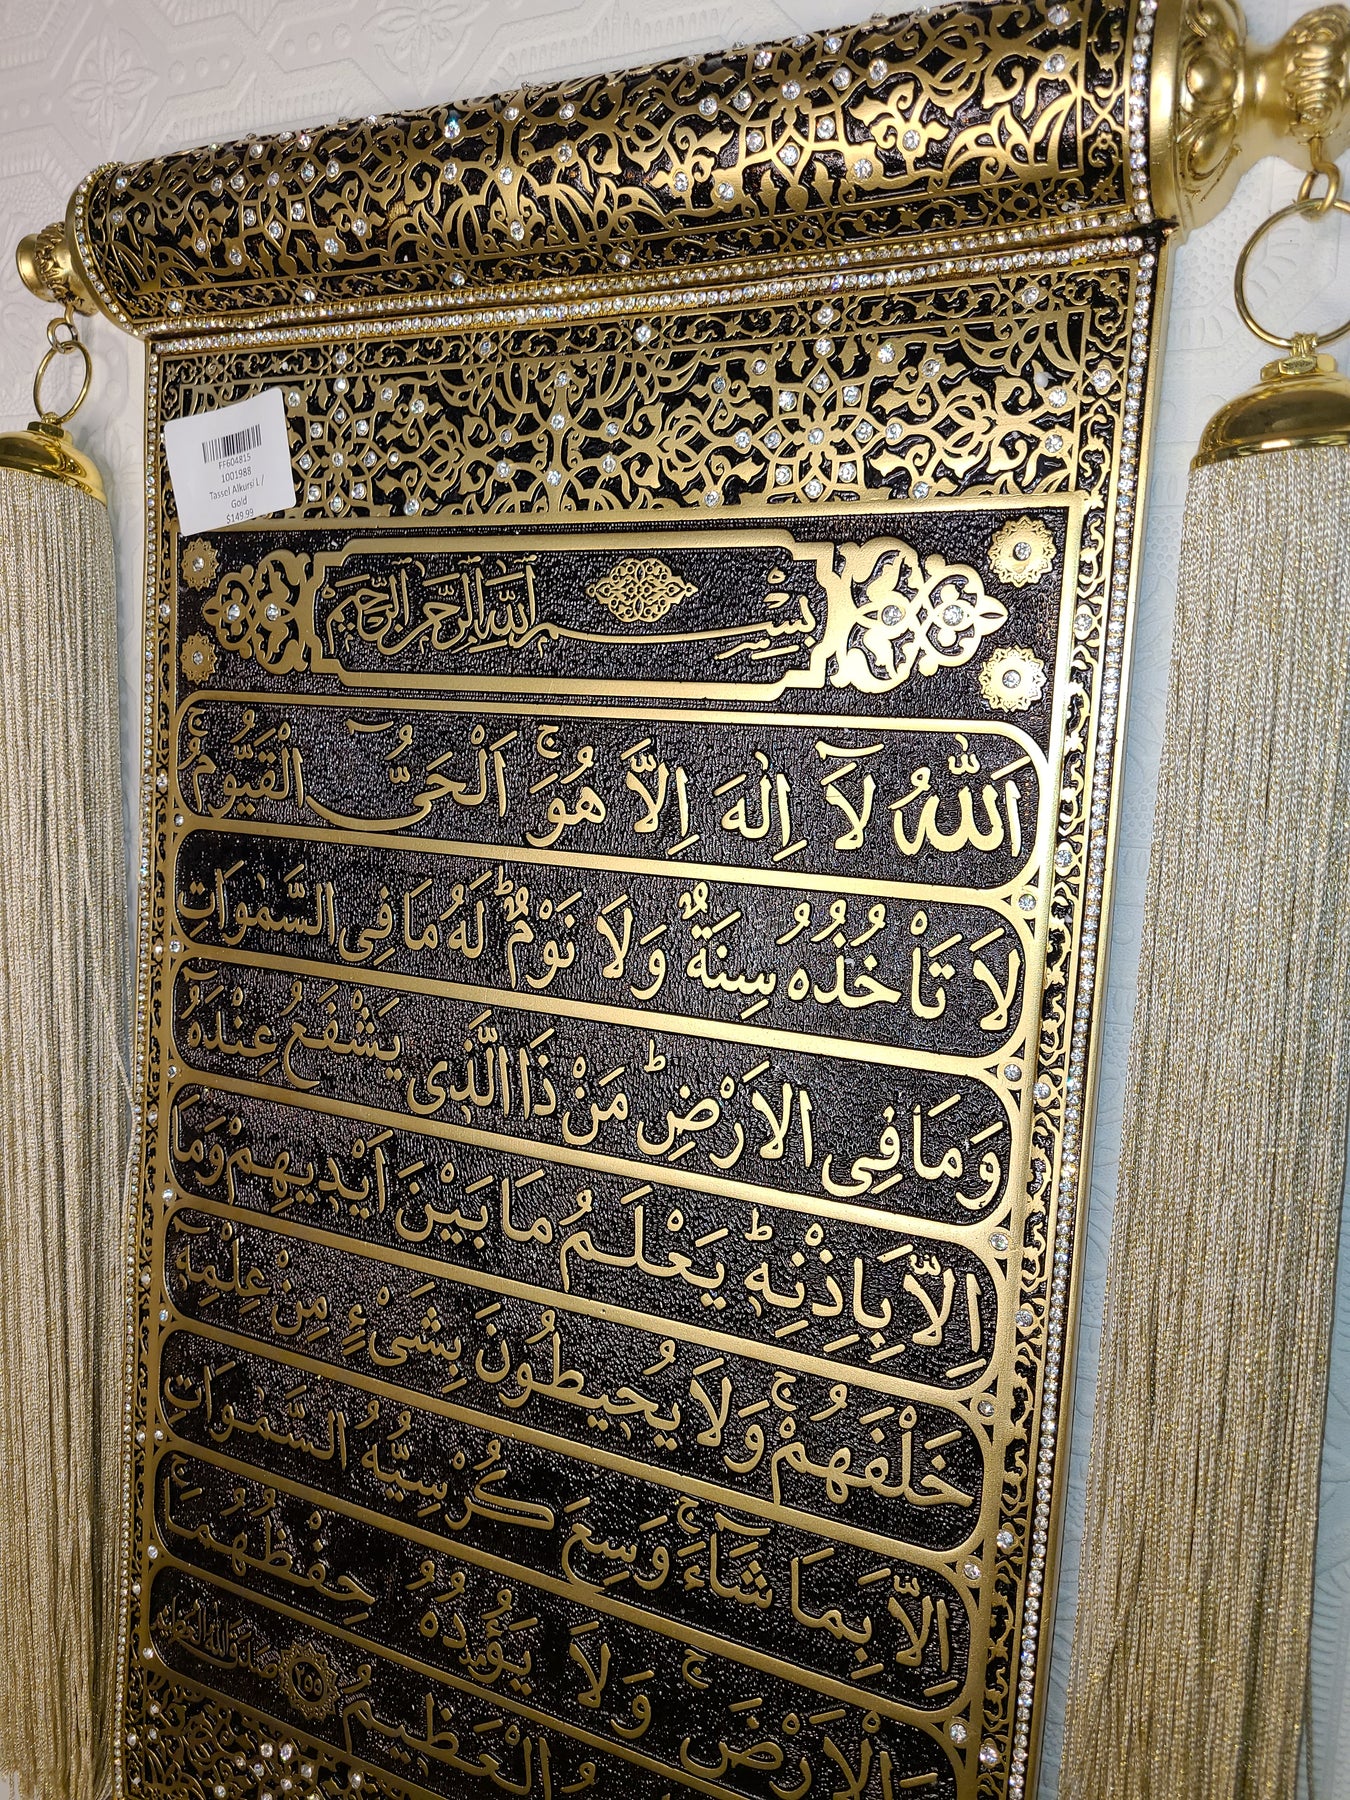 FF604815
1001988
Tassel Alkursi L /
Gold
$149.99
بِسْمِ اللّٰهِ الرَّحْمٰنِ الرَّحِيْمِ
اَللّٰهُ لَآ اِلٰهَ اِلَّا هُوَۚ اَلْحَىُّ الْقَيُّوْمُۚ
لَا تَاْخُذُهُ سِنَةٌ وَلَا نَوْمٌؕ لَهُ مَا فِى السَّمٰوَاتِ
وَمَا فِى الْاَرْضِؕ مَنْ ذَا الَّذٖى يَشْفَعُ عِنْدَهُٓ
اِلَّا بِاِذْنِهٖؕ يَعْلَمُ مَا بَيْنَ اَيْدٖيهِمْ وَمَا
خَلْفَهُمْۚ وَلَا يُحٖيطُونَ بِشَىْءٍ مِنْ عِلْمِهٖٓ
اِلَّا بِمَا شَٓاءَۚ وَسِعَ كُرْسِيُّهُ السَّمٰوَاتِ
وَالْاَرْضَۚ وَلَا يَؤُ۫دُهُ حِفْظُهُمَاۚ
الْعَظٖيمُ ٢٥٥ صدق الله العظيم